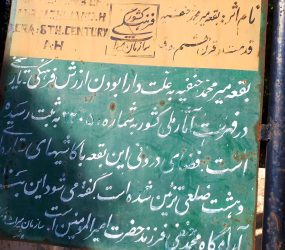 نام اثر: بقعه میر محمد حنفیه
قدمت: قرن ششم ه ق
6TH. CENTURY
A.H
بقعه میر محمد حنفیه به علت دارا بودن ارزش فرهنگی تاریخی
در فهرست آثار ملی کشور به شماره به ثبت رسیده
است. فضای درونی این بقعه با کاشیهای
و هشت ضلعی تزئین شده است. گفته می شود این
آرامگاه محمد حنفیه فرزند حضرت امیرالمومنین است